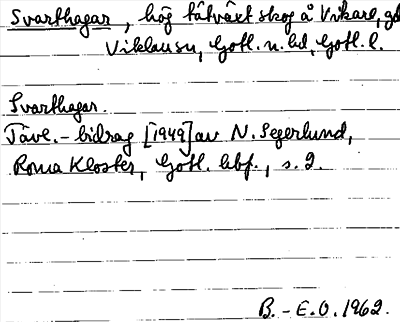 Svarthagar, hög tätväxt skog å Vikare, gd
Viklausu, Gotl. n. hd, Gotl. l.
Svarthagar.
Tävl.-bidrag [1949] av N. Segerlund,
Roma Kloster, Gotl. hbf., s. 2.
B.-E.O. 1962.